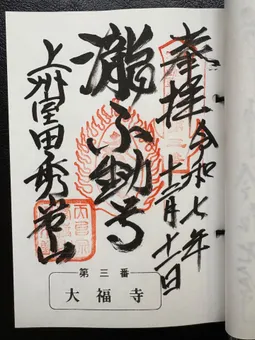 奉拝
令和七年
十二月十一日
瀧不動尊
上州室田秀巌山
第三番
大福寺